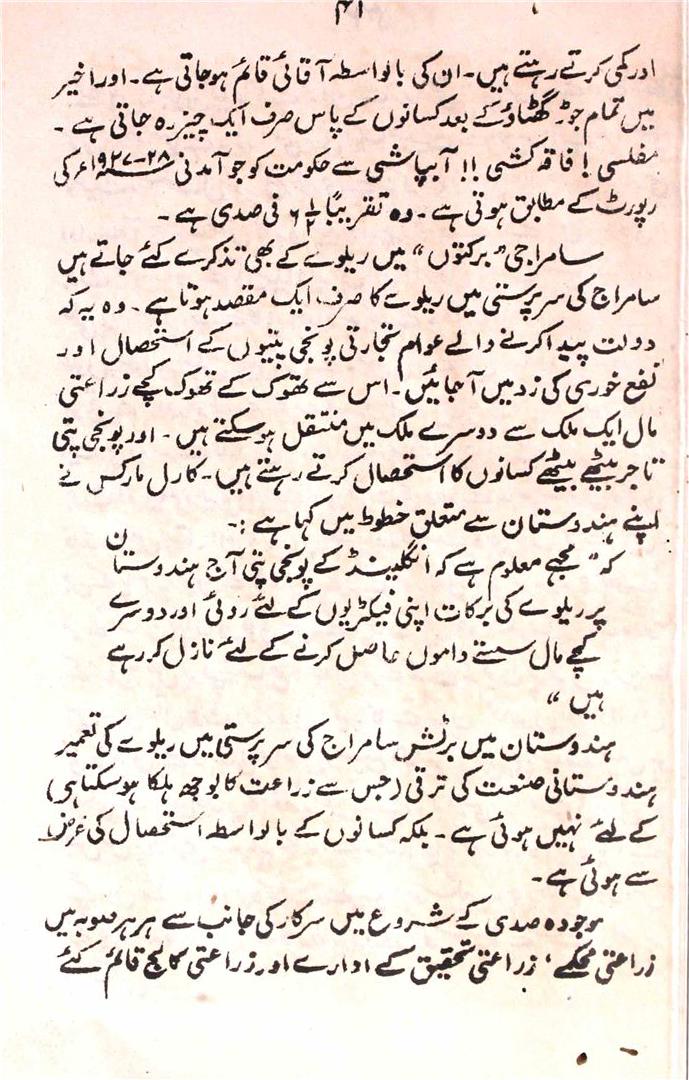 ۴۱
اور کمی کرتے رہتے ہیں۔ ان کی بالواسطہ آقائی قائم ہوجاتی ہے۔ اور اخیر
میں تمام جوڑ گھٹاؤ کے بعد کسانوں کے پاس صرف ایک چیز رہ جاتی ہے۔
مفلسی! فاقہ کشی!! آبپاشی سے حکومت کو جو آمدنی ۲۸-۱۹۲۷ء کی
رپورٹ کے مطابق ہوتی ہے۔ وہ تقریباً ۶ ۱/۲ فی صدی ہے۔
سامراجی "برکتوں" میں ریلوے کے بھی تذکرے کئے جاتے ہیں
سامراج کی سرپرستی میں ریلوے کا صرف ایک مقصد ہوتا ہے۔ وہ یہ کہ
دولت پیدا کرنے والے عوام تجارتی پونجی پتیوں کے استحصال اور
نفع خوری کی زد میں آجائیں۔ اس سے تھوک کے تھوک کچے زراعتی
مال ایک ملک سے دوسرے ملک میں منتقل ہوسکتے ہیں۔ اور پونجی پتی
تاجر بیٹھے بیٹھے کسانوں کا استحصال کرتے رہتے ہیں۔ کارل مارکس نے
اپنے ہندوستان سے متعلق خطوط میں کہا ہے:۔
کہ "مجھے معلوم ہے کہ انگلینڈ کے پونجی پتی آج ہندوستان
پر ریلوے کی برکات اپنی فیکٹریوں کے لئے روئی اور دوسرے
کچے مال سستے داموں حاصل کرنے کے لئے نازل کر رہے
ہیں"
ہندوستان میں برٹش سامراج کی سرپرستی میں ریلوے کی تعمیر
ہندوستانی صنعت کی ترقی (جس سے زراعت کا بوجھ ہلکا ہوسکتا ہی)
کے لئے نہیں ہوئی ہے۔ بلکہ کسانوں کے بالواسطہ استحصال کی غرض
سے ہوئی ہے۔
موجودہ صدی کے شروع میں سرکار کی جانب سے ہر ہر صوبہ میں
زراعتی محکمے، زراعتی تحقیق کے ادارے اور زراعتی کالج قائم کئے